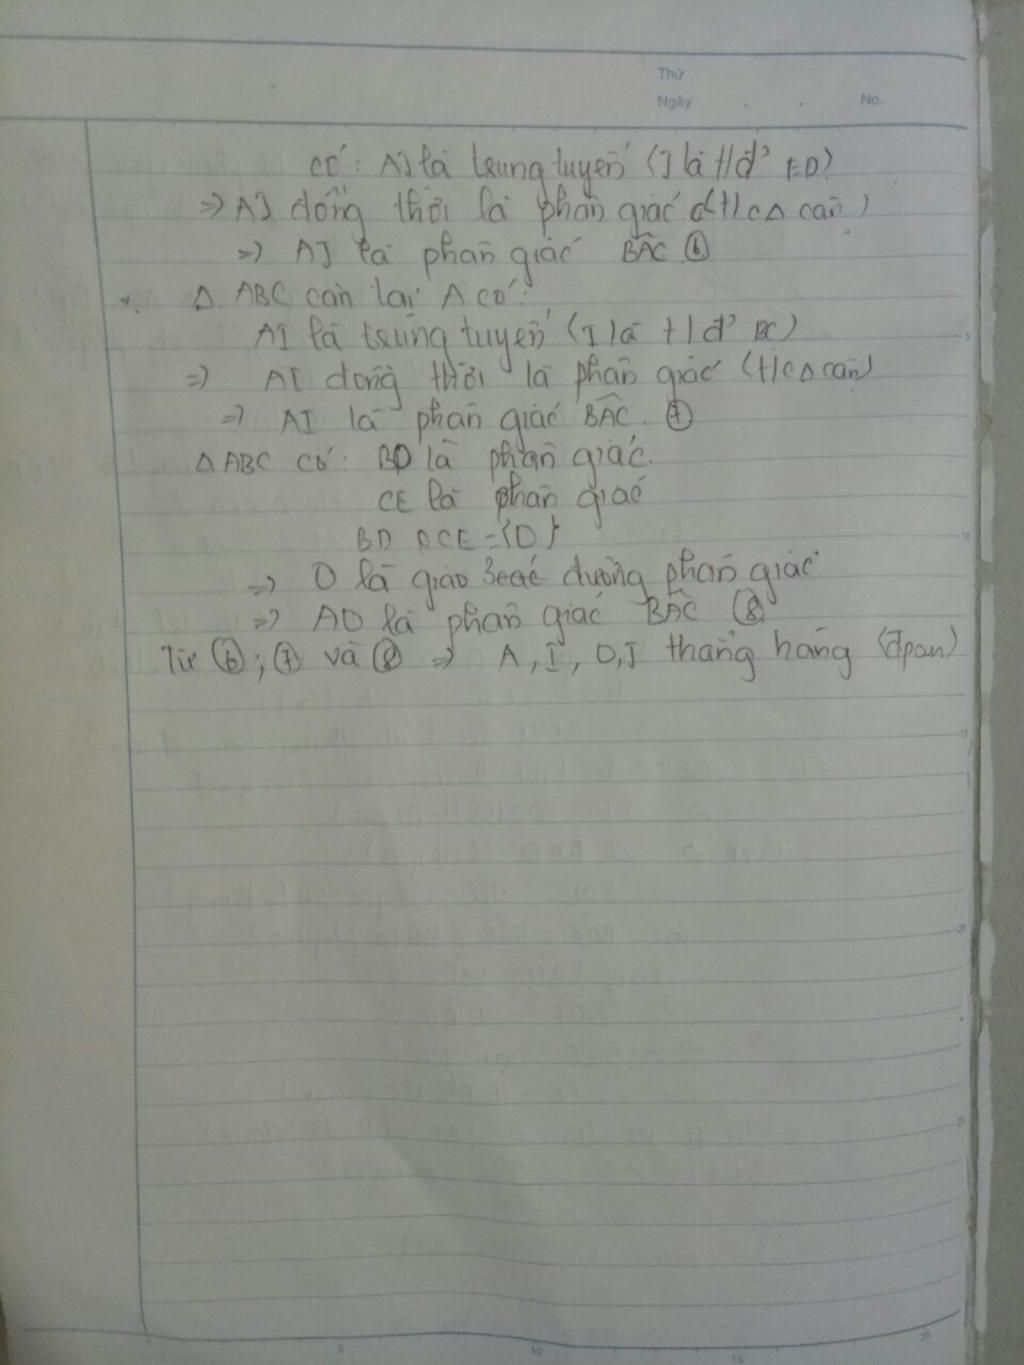 Thứ
Ngày . . No.
có: AJ là trung tuyến (J là t/đ' ED)
=> AJ đồng thời là phân giác (t/c Δ cân)
=> AJ là phân giác BÂC ⑥
Δ ABC cân tại A có:
AI là trung tuyến (I là t/đ' BC)
=> AI đồng thời là phân giác (t/c Δ cân)
=> AI là phân giác BÂC. ⑦
Δ ABC có: BD là phân giác.
CE là phân giác
BD ∩ CE = {O}
=> O là giao 3 đường phân giác
=> AO là phân giác BÂC ⑧
Từ ⑥; ⑦ và ⑧ => A, I, O, J thẳng hàng (đpcm)
5
10
15
20
25
5
10
15
20